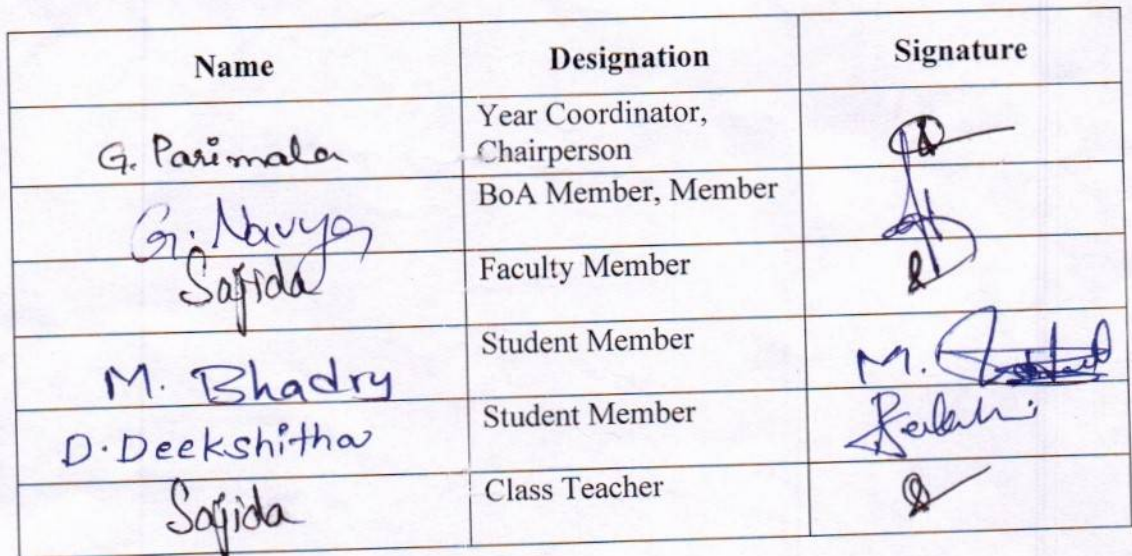 Name Designation Signature
G. Parimala Year Coordinator,
Chairperson
G. Navya BoA Member, Member
Sajida Faculty Member
M. Bhadry Student Member M.
D. Deekshitha Student Member
Sajida Class Teacher